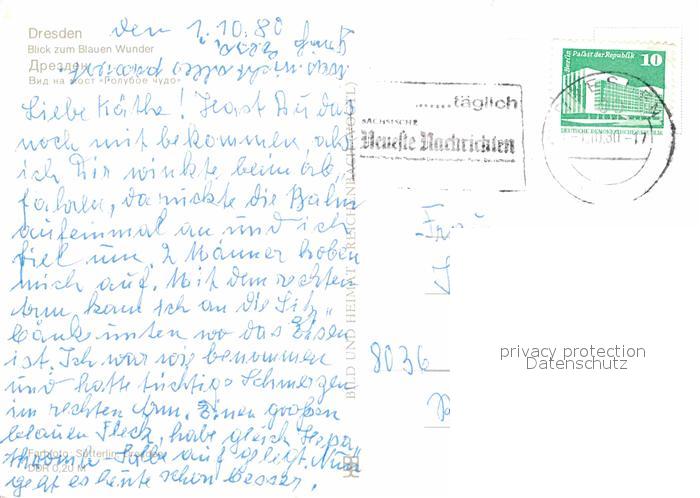 Dresden
Blick zum Blauen Wunder
Дрезден
Вид на мост «Голубое чудо»
den 1.10.80
Liebe Käthe! Hast Du das
noch mit bekommen, als
ich Dir winkte, beim ab-
fahren, da rückte die Bahn
aufeinmal an und ich
fiel um. 2 Männer hoben
mich auf. Mit dem rechten
Arm kam ich an die Sitz-
bänke unten wo das Eisen
ist. Ich war wie benommen
und hatte tüchtige Schmerzen
im rechten Arm. Einen großen
blauen Fleck, habe gleich Hepa
thromb-Salbe auf gelegt. Nun
geht es heute schon besser.
Farbfoto: Sütterlin, Dresden
DDR 0,20 M
BILD UND HEIMAT REICHENBACH (VOGTL)
......täglich
SÄCHSISCHE
Neueste Nachrichten
Berlin, Palast der Republik
10
DEUTSCHE DEMOKRATISCHE REPUBLIK
8036
privacy protection
Datenschutz